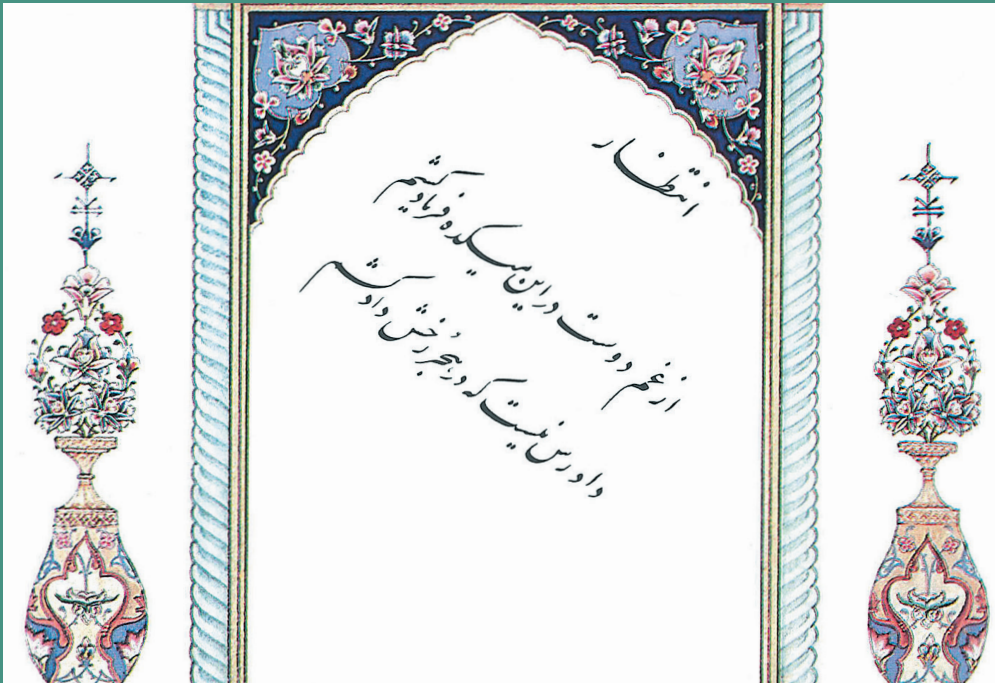 انتظار
از غم دوست در این میکده فریاد کشم
دادرس نیست که در هجر رخش داد کشم